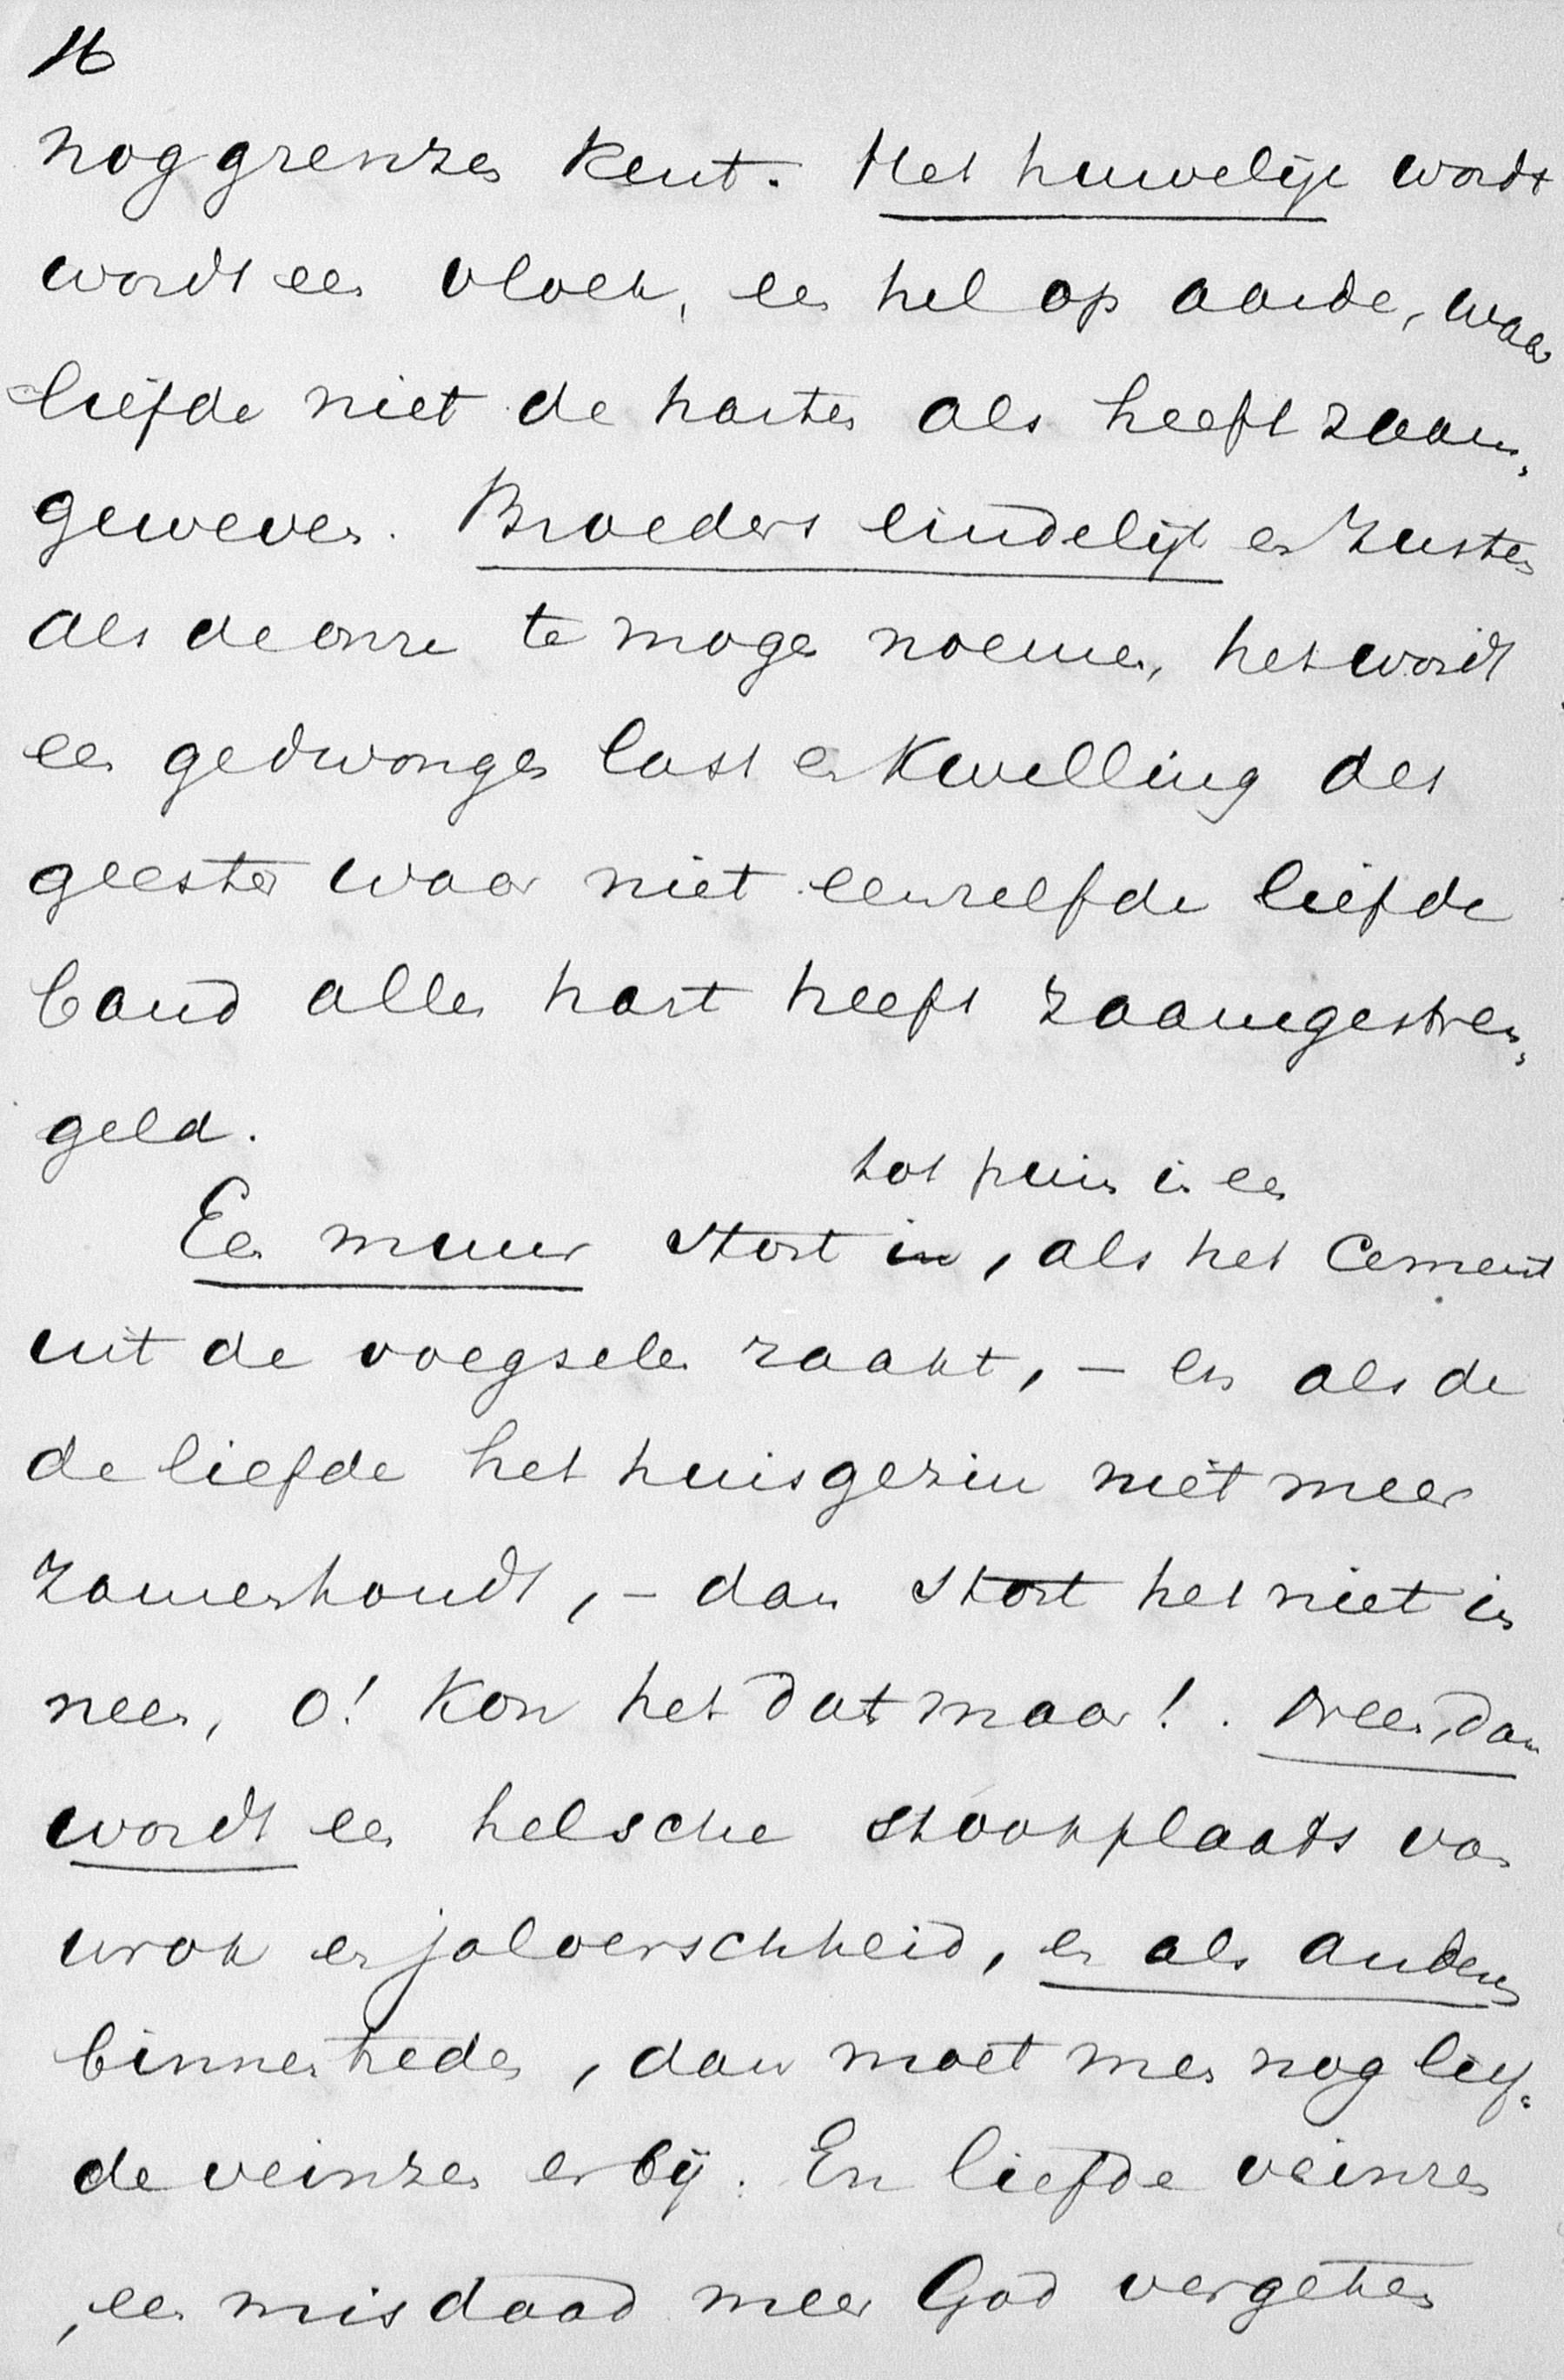 16
nog grenzen kent. Het huwelijk wordt
wordt een vloek, een hel op aarde, waar
liefde niet de harten als heeft zaam-
geweven. Broeders eindelijk en Zusters
als de onze te mogen noemen, het wordt
een gedwongen last en Kwelling des
geestes waar niet eenzelfde liefde
band aller hart heeft zaamgestren-
geld.
tot puin in een
Een muur stort in, als het Cement
uit de voegselen raakt, – en als de
de liefde het huisgezin niet meer
Zamenhoudt, – dan stort het niet in
neen, o! Kon het dat maar! . Neen, dan
wordt een helsche stookplaats van
wrok en jaloerschheid, en als anderen
binnentreden, dan moet men nog lief-
de veinzen er bij. En liefde veinzen
, een misdaad meer God vergeten